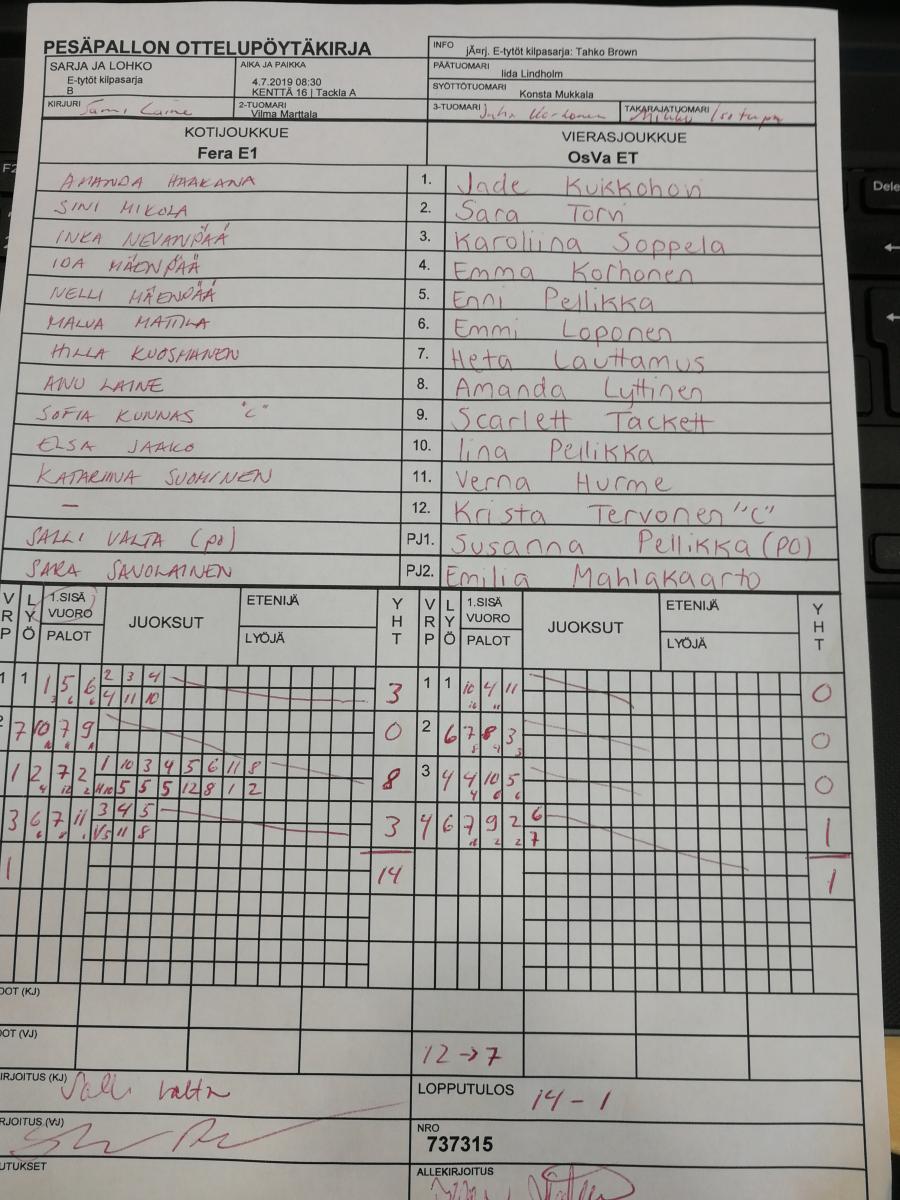 PESÄPALLON OTTELUPÖYTÄKIRJA
INFO jÃ¤rj. E-tytöt kilpasarja: Tahko Brown
SARJA JA LOHKO
E-tytöt kilpasarja
B
AIKA JA PAIKKA
4.7.2019 08:30
KENTTÄ 16 | Tackla A
PÄÄTUOMARI Iida Lindholm
SYÖTTÖTUOMARI Konsta Mukkala
KIRJURI Sami Laine
2-TUOMARI
Vilma Marttala
3-TUOMARI Juha Korhonen
TAKARAJATUOMARI
KOTIJOUKKUE
Fera E1
VIERASJOUKKUE
OsVa ET
AMANDA HAAKANA 1. Jade Kukkohovi
SINI MIKOLA 2. Sara Torvi
INKA NEVANPÄÄ 3. Karoliina Soppela
IDA MÄENPÄÄ 4. Emma Korhonen
NELLI MÄENPÄÄ 5. Enni Pellikka
MALVA MATTILA 6. Emmi Loponen
HILLA KUOSMANEN 7. Heta Lauttamus
ANU LAINE 8. Amanda Lyttinen
SOFIA KUNNAS "C" 9. Scarlett Tackett
ELSA JAAKO 10. Iina Pellikka
KATARIINA SUOMINEN 11. Verna Hurme
— 12. Krista Tervonen "C"
SALLI VALTA (po) PJ1. Susanna Pellikka (PO)
SARA SAVOLAINEN PJ2. Emilia Mahlakaarto
VRP LYÖ 1.SISÄ VUORO PALOT JUOKSUT ETENIJÄ LYÖJÄ YHT VRP LYÖ 1.SISÄ VUORO PALOT JUOKSUT ETENIJÄ LYÖJÄ YHT
1 1 1 5 6 2 3 4 3 1 1 10 4 11 0
4 11 10
7 10 7 9 0 2 6 7 8 3 0
1 2 7 2 1 10 3 4 5 6 11 8 8 3 4 4 10 5 0
5 5 5 12 8 1 2
3 6 7 11 3 4 5 3 4 6 7 9 2 6 1
V5 11 8 7
1 14 1
12 → 7
Salli Valta
LOPPUTULOS 14 - 1
NRO
737315
ALLEKIRJOITUS